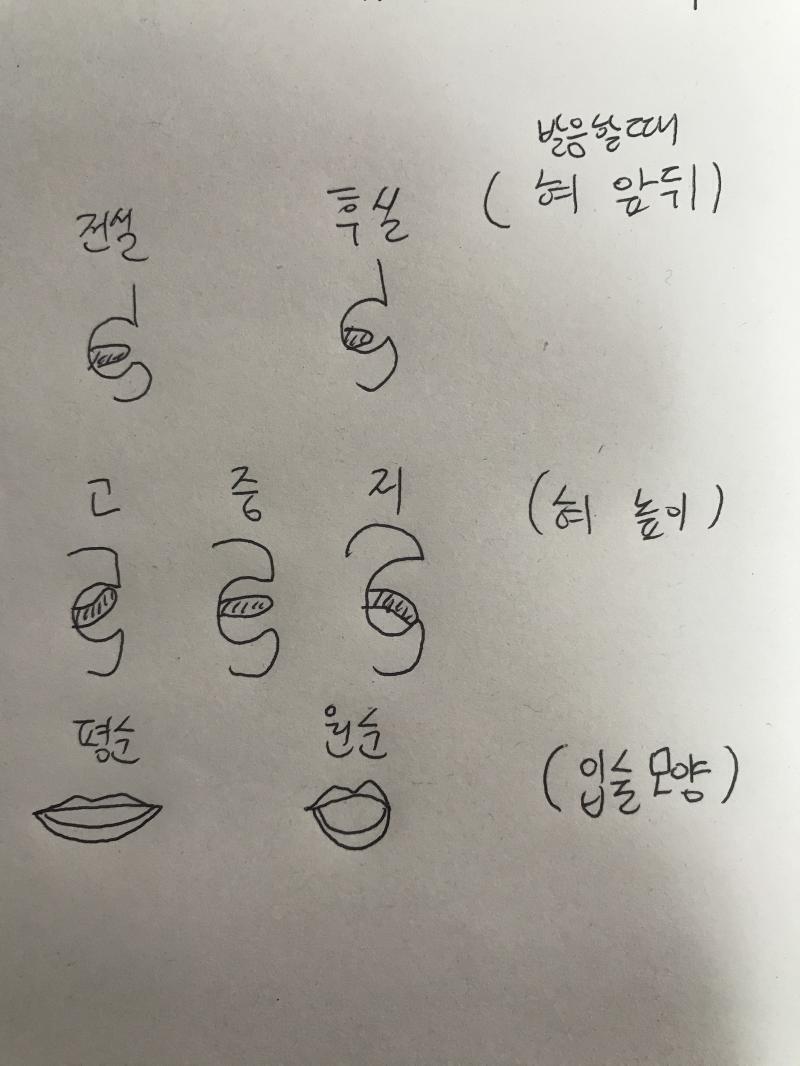 발음할때
전설 후설 (혀 앞뒤)
고 중 저 (혀 높이)
평순 원순 (입술모양)